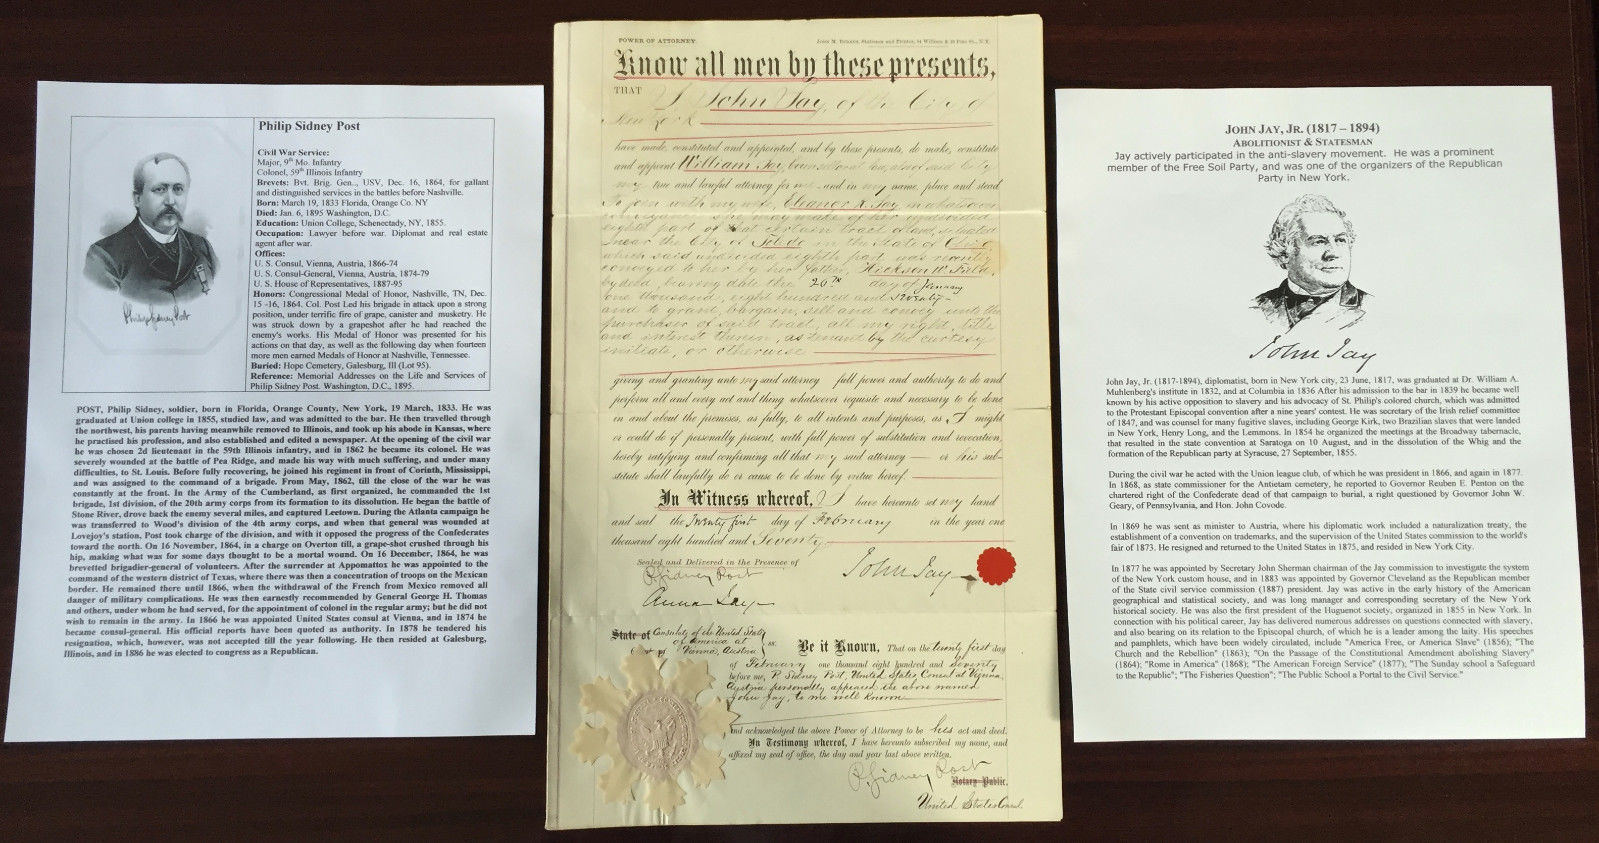 Philip Sidney Post
Civil War Service:
Major, 9th Mo. Infantry
Colonel, 59th Illinois Infantry
Brevets: Bvt. Brig. Gen., USV, Dec. 16, 1864, for gallant
and distinguished services in the battles before Nashville.
Born: March 19, 1833 Florida, Orange Co. NY
Died: Jan. 6, 1895 Washington, D.C.
Education: Union College, Schenectady, NY, 1855.
Occupation: Lawyer before war. Diplomat and real estate
agent after war.
Offices:
U. S. Consul, Vienna, Austria, 1866-74
U. S. Consul-General, Vienna, Austria, 1874-79
U. S. House of Representatives, 1887-95
Honors: Congressional Medal of Honor, Nashville, TN, Dec.
15 -16, 1864. Col. Post Led his brigade in attack upon a strong
position, under terrific fire of grape, canister and musketry. He
was struck down by a grapeshot after he had reached the
enemy's works. His Medal of Honor was presented for his
actions on that day, as well as the following day when fourteen
more men earned Medals of Honor at Nashville, Tennessee.
Buried: Hope Cemetery, Galesburg, Ill (Lot 95).
Reference: Memorial Addresses on the Life and Services of
Philip Sidney Post. Washington, D.C., 1895.
Philip Sidney Post
POST, Philip Sidney, soldier, born in Florida, Orange County, New York, 19 March, 1833. He was
graduated at Union college in 1855, studied law, and was admitted to the bar. He then travelled through
the northwest, his parents having meanwhile removed to Illinois, and took up his abode in Kansas, where
he practised his profession, and also established and edited a newspaper. At the opening of the civil war
he was chosen 2d lieutenant in the 59th Illinois infantry, and in 1862 he became its colonel. He was
severely wounded at the battle of Pea Ridge, and made his way with much suffering, and under many
difficulties, to St. Louis. Before fully recovering, he joined his regiment in front of Corinth, Mississippi,
and was assigned to the command of a brigade. From May, 1862, till the close of the war he was
constantly at the front. In the Army of the Cumberland, as first organized, he commanded the 1st
brigade, 1st division, of the 20th army corps from its formation to its dissolution. He began the battle of
Stone River, drove back the enemy several miles, and captured Leetown. During the Atlanta campaign he
was transferred to Wood's division of the 4th army corps, and when that general was wounded at
Lovejoy's station, Post took charge of the division, and with it opposed the progress of the Confederates
toward the north. On 16 November, 1864, in a charge on Overton till, a grape-shot crushed through his
hip, making what was for some days thought to be a mortal wound. On 16 December, 1864, he was
brevetted brigadier-general of volunteers. After the surrender at Appomattox he was appointed to the
command of the western district of Texas, where there was then a concentration of troops on the Mexican
border. He remained there until 1866, when the withdrawal of the French from Mexico removed all
danger of military complications. He was then earnestly recommended by General George H. Thomas
and others, under whom he had served, for the appointment of colonel in the regular army; but he did not
wish to remain in the army. In 1866 he was appointed United States consul at Vienna, and in 1874 he
became consul-general. His official reports have been quoted as authority. In 1878 he tendered his
resignation, which, however, was not accepted till the year following. He then resided at Galesburg,
Illinois, and in 1886 he was elected to congress as a Republican.
POWER OF ATTORNEY.
Know all men by these presents,
THAT I John Jay, of the City of
New York
have made, constituted and appointed, and by these presents, do make, constitute
and appoint William Jay, of said City
my true and lawful attorney for me and in my name, place and stead
To join with my wife, Eleanor K. Jay, in whatsoever
conveyance she may make of her undivided
eighth part of that certain tract of land, situated
near the City of Toledo in the State of Ohio,
which said undivided eighth part was recently
conveyed to her by her father, Hickson W. Field,
by deed, bearing date the 20th day of January
one thousand eight hundred and seventy-
and to grant, bargain, sell and convey unto the
purchaser of said tract, all my right, title
and interest therein, as tenant by the curtesy
initiate, or otherwise
giving and granting unto my said attorney full power and authority to do and
perform all and every act and thing whatsoever requisite and necessary to be done
in and about the premises, as fully, to all intents and purposes, as I might
or could do if personally present, with full power of substitution and revocation,
hereby ratifying and confirming all that my said attorney or his sub-
stitute shall lawfully do or cause to be done by virtue hereof.
In Witness whereof, I have hereunto set my hand
and seal the Twenty first day of February in the year one
thousand eight hundred and Seventy
Sealed and Delivered in the Presence of
P. Sidney Post
John Jay
Anna Jay
State of Consulate of the United States
of America at
Vienna, Austria } ss.
Be it Known, That on the twenty first day
of February one thousand eight hundred and seventy
before me, P. Sidney Post, United States Consul at Vienna,
Austria personally appeared the above named
John Jay, to me well known
and acknowledged the above Power of Attorney to be his act and deed.
In Testimony whereof, I have hereunto subscribed my name, and
affixed my seal of office, the day and year last above written.
P. Sidney Post
Notary Public.
United States Consul
JOHN JAY, JR. (1817 – 1894)
ABOLITIONIST & STATESMAN
Jay actively participated in the anti-slavery movement. He was a prominent
member of the Free Soil Party, and was one of the organizers of the Republican
Party in New York.
John Jay
John Jay, Jr. (1817-1894), diplomatist, born in New York city, 23 June, 1817, was graduated at Dr. William A.
Muhlenberg's institute in 1832, and at Columbia in 1836 After his admission to the bar in 1839 he became well
known by his active opposition to slavery and his advocacy of St. Philip's colored church, which was admitted
to the Protestant Episcopal convention after a nine years' contest. He was secretary of the Irish relief committee
of 1847, and was counsel for many fugitive slaves, including George Kirk, two Brazilian slaves that were landed
in New York, Henry Long, and the Lemmons. In 1854 he organized the meetings at the Broadway tabernacle,
that resulted in the state convention at Saratoga on 10 August, and in the dissolution of the Whig and the
formation of the Republican party at Syracuse, 27 September, 1855.
During the civil war he acted with the Union league club, of which he was president in 1866, and again in 1877.
In 1868, as state commissioner for the Antietam cemetery, he reported to Governor Reuben E. Penton on the
chartered right of the Confederate dead of that campaign to burial, a right questioned by Governor John W.
Geary, of Pennsylvania, and Hon. John Covode.
In 1869 he was sent as minister to Austria, where his diplomatic work included a naturalization treaty, the
establishment of a convention on trademarks, and the supervision of the United States commission to the world's
fair of 1873. He resigned and returned to the United States in 1875, and resided in New York City.
In 1877 he was appointed by Secretary John Sherman chairman of the Jay commission to investigate the system
of the New York custom house, and in 1883 was appointed by Governor Cleveland as the Republican member
of the State civil service commission (1887) president. Jay was active in the early history of the American
geographical and statistical society, and was long manager and corresponding secretary of the New York
historical society. He was also the first president of the Huguenot society, organized in 1855 in New York. In
connection with his political career, Jay has delivered numerous addresses on questions connected with slavery,
and also bearing on its relation to the Episcopal church, of which he is a leader among the laity. His speeches
and pamphlets, which have been widely circulated, include "America Free, or America Slave" (1856); "The
Church and the Rebellion" (1863); "On the Passage of the Constitutional Amendment abolishing Slavery"
(1864); "Rome in America" (1868); "The American Foreign Service" (1877); "The Sunday school a Safeguard
to the Republic"; "The Fisheries Question"; "The Public School a Portal to the Civil Service."